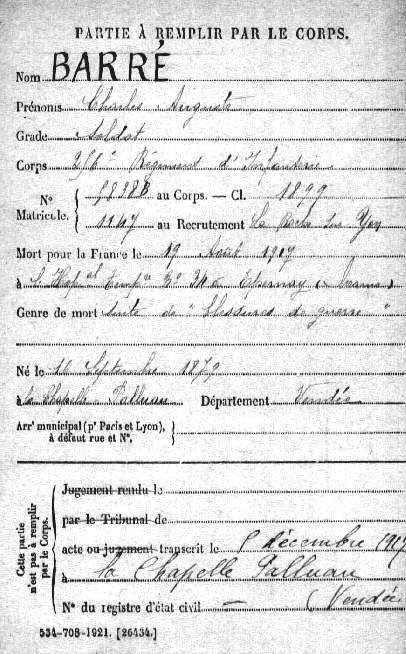 PARTIE À REMPLIR PAR LE CORPS.
Nom BARRÉ
Prénoms Charles Auguste
Grade Soldat
Corps Régiment d'Infanterie
N° Matricule. au Corps. — Cl. 1899
1147 au Recrutement La Roche sur Yon
Mort pour la France le 19 Août 1917
à l'Hop al Temp re Epernay (Marne)
Genre de mort Suite de "blessures de guerre"
Né le Septembre 1879
à la Chapelle Palluau Département Vendée
Arrt municipal (pr Paris et Lyon),
à défaut rue et N°.
Cette partie n'est pas à remplir par le Corps.
Jugement rendu le
par le Tribunal de
acte ou jugement transcrit le décembre 1917
à la Chapelle Palluau
N° du registre d'état civil — (Vendée
534-708-1921. [26434.]